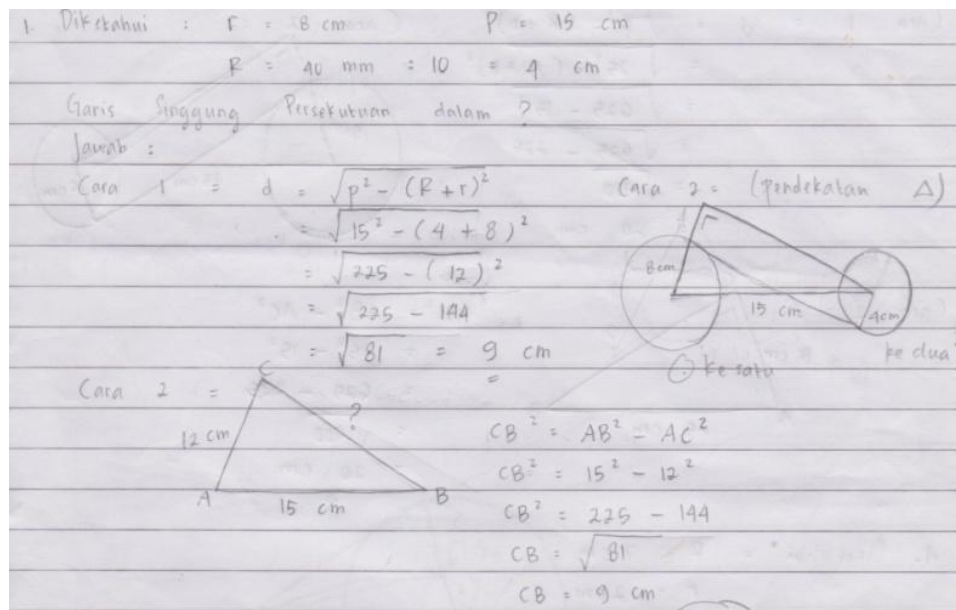 1. Diketahui : r = 8 cm P = 15 cm
R = 40 mm : 10 = 4 cm
Garis Singgung Persekutuan dalam ?
Jawab :
Cara 1 = d = √p² - (R + r)²
= √15² - (4 + 8)²
= √225 - (12)²
= √225 - 144
= √81 = 9 cm
Cara 2 = (pendekatan △)
8 cm
15 cm
4cm
ke satu
ke dua
Cara 2 =
C
12 cm
?
A
15 cm
B
CB² = AB² - AC²
CB² = 15² - 12²
CB² = 225 - 144
CB = √81
CB = 9 cm